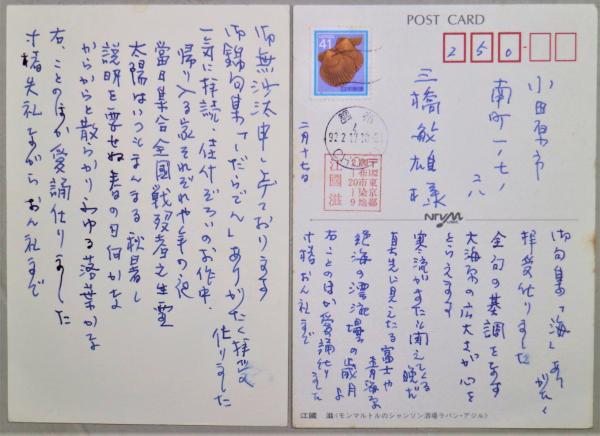 御無沙汰申し上げております
御錦句集「しだらでん」ありがたく拝受
仕りました
一気に拝読・仕什ぞろいのお作中、
帰り入る家それぞれや年の
当日集合全國戦歿者之生霊
太陽はいつもまんまる秋暑し
説明を要せぬ春の日何かな
からからと散らかりみゆる落葉かな
右、ことのほか愛誦仕りました
寸楮失礼ながらおん礼まで
POST CARD
NIPPON
41
日本郵便
92.2.17
250-
小田原市
南町一ノ七ノ
二八
三橋敏雄様
二月十七日
東京都
港区
南麻布
江國滋
御句集「海」あり
がたく
拝受仕りました
全句の基調をなす
大海原の広大さが心を
とらえます
寒流がすたすた聞えてくる
晩だ
真先に見えたる富士や
青海原
絶海の漂流塲の歳月よ
右ことのほか愛誦仕り
ました
寸楮おん礼まで
江國 滋〈モンマルトルのシャンソン酒場ラパン・アジル〉